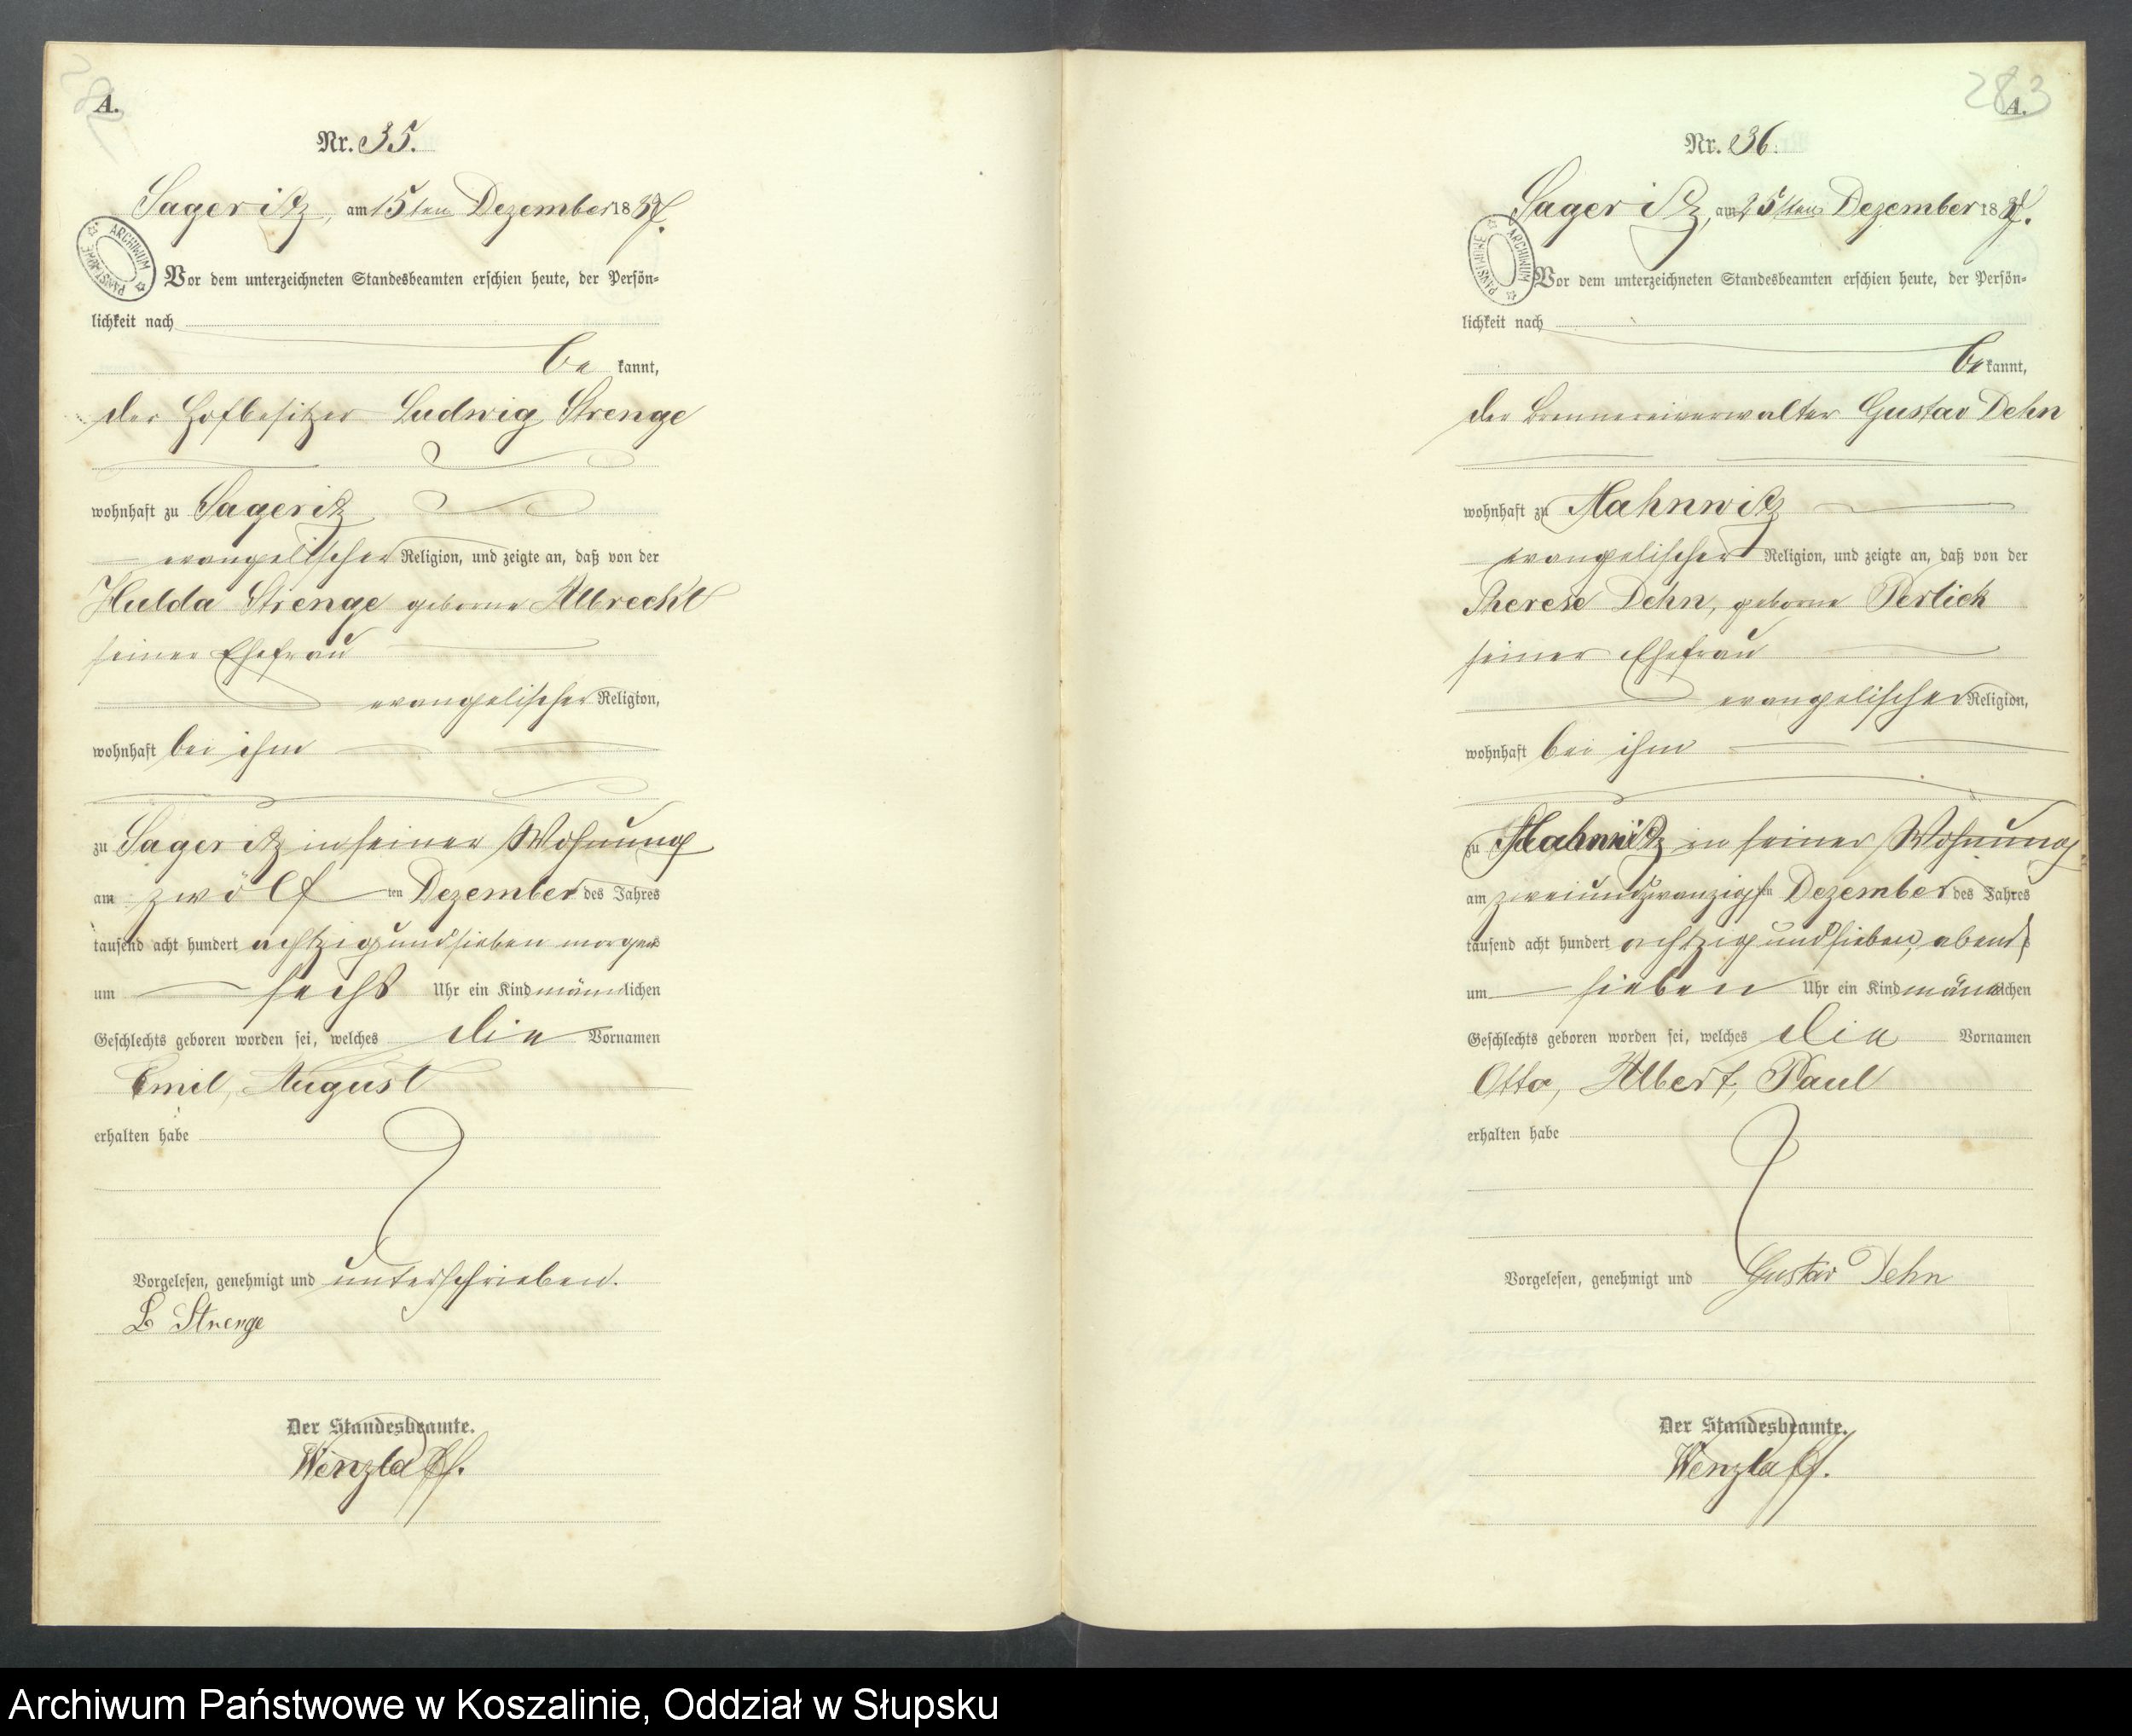 A.
Nr. 35.
Sageritz, am 15ten Dezember 1887.
ARCHIWUM PAŃSTWOWE
Vor dem unterzeichneten Standesbeamten erschien heute, der Persön-
lichkeit nach
be kannt,
der Hofbesitzer Ludwig Strenge
wohnhaft zu Sageritz
evangelischer Religion, und zeigte an, daß von der
Hulda Strenge geborne Albrecht
seiner Ehefrau
evangelischer Religion,
wohnhaft bei ihm
zu Sageritz in seiner Wohnung
am zwölf ten Dezember des Jahres
tausend acht hundert achtzig und sieben morgens
um sechs Uhr ein Kind männlichen
Geschlechts geboren worden sei, welches die Vornamen
Emil, August
erhalten habe
Vorgelesen, genehmigt und unterschrieben.
L Strenge
Der Standesbeamte.
Wenzlaff.
283
A.
Nr. 36.
Sageritz, am 25ten Dezember 1887.
ARCHIWUM PAŃSTWOWE
Vor dem unterzeichneten Standesbeamten erschien heute, der Persön-
lichkeit nach
be kannt,
der Brennereiverwalter Gustav Dehn
wohnhaft zu Mahnwitz
evangelischer Religion, und zeigte an, daß von der
Therese Dehn, geborne Perlick
seiner Ehefrau
evangelischer Religion,
wohnhaft bei ihm
zu Mahnwitz in seiner Wohnung
am zweiundzwanzigsten Dezember des Jahres
tausend acht hundert achtzig und sieben, abends
um sieben Uhr ein Kind männlichen
Geschlechts geboren worden sei, welches die Vornamen
Otto, Albert, Paul
erhalten habe
Vorgelesen, genehmigt und Gustav Dehn
Der Standesbeamte.
Wenzlaff.
Archiwum Państwowe w Koszalinie, Oddział w Słupsku